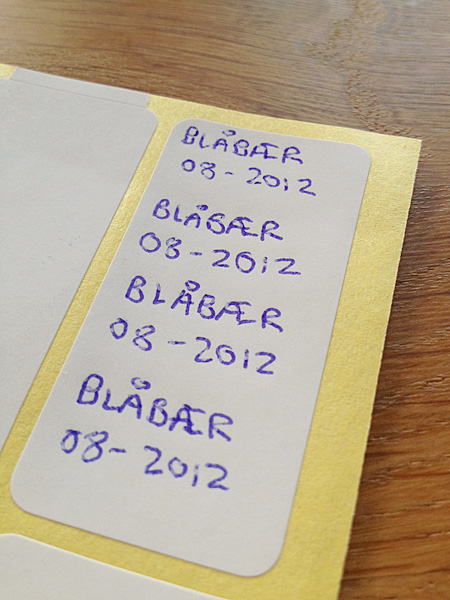 BLÅBÆR
08-2012
BLÅBÆR
08-2012
BLÅBÆR
08-2012
BLÅBÆR
08-2012